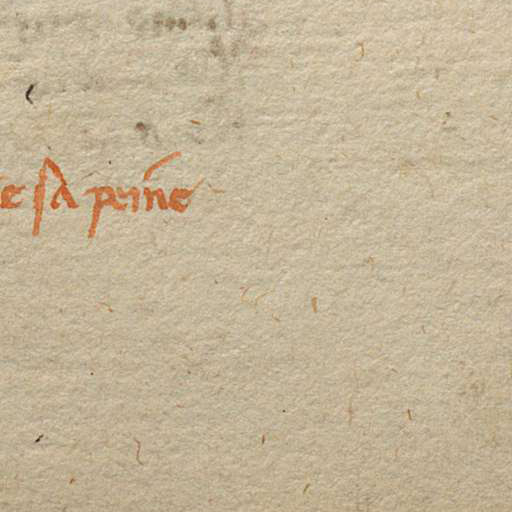 e sa peine